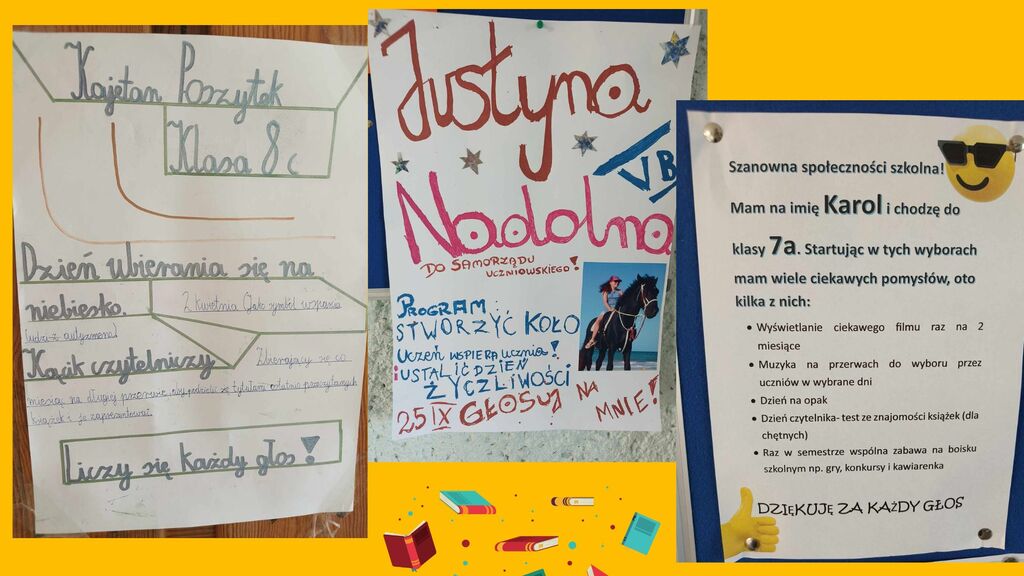 Kajetan Poszytek
Klasa 8 c
Dzień ubierania się na
niebiesko.
2 kwietnia (Jako symbol wsparcia
ludzi z autyzmem)
Kącik czytelniczy
Zbierający się co
miesiąc na długiej przerwie, aby podzielić się tytułami ostatnio przeczytanych
książek i je zaprezentować.
Liczy się każdy głos!
Justyna
VB
Nadolna
DO SAMORZĄDU
UCZNIOWSKIEGO!
PROGRAM:
STWORZYĆ KOŁO
UCZEŃ WSPIERA UCZNIA!
I USTALIĆ DZIEŃ
ŻYCZLIWOŚCI
25 IX GŁOSUJ NA
MNIE!
Szanowna społeczności szkolna!
Mam na imię Karol i chodzę do
klasy 7a. Startując w tych wyborach
mam wiele ciekawych pomysłów, oto
kilka z nich:
• Wyświetlanie ciekawego filmu raz na 2
miesiące
• Muzyka na przerwach do wyboru przez
uczniów w wybrane dni
• Dzień na opak
• Dzień czytelnika- test ze znajomości książek (dla
chętnych)
• Raz w semestrze wspólna zabawa na boisku
szkolnym np. gry, konkursy i kawiarenka
DZIĘKUJĘ ZA KAŻDY GŁOS